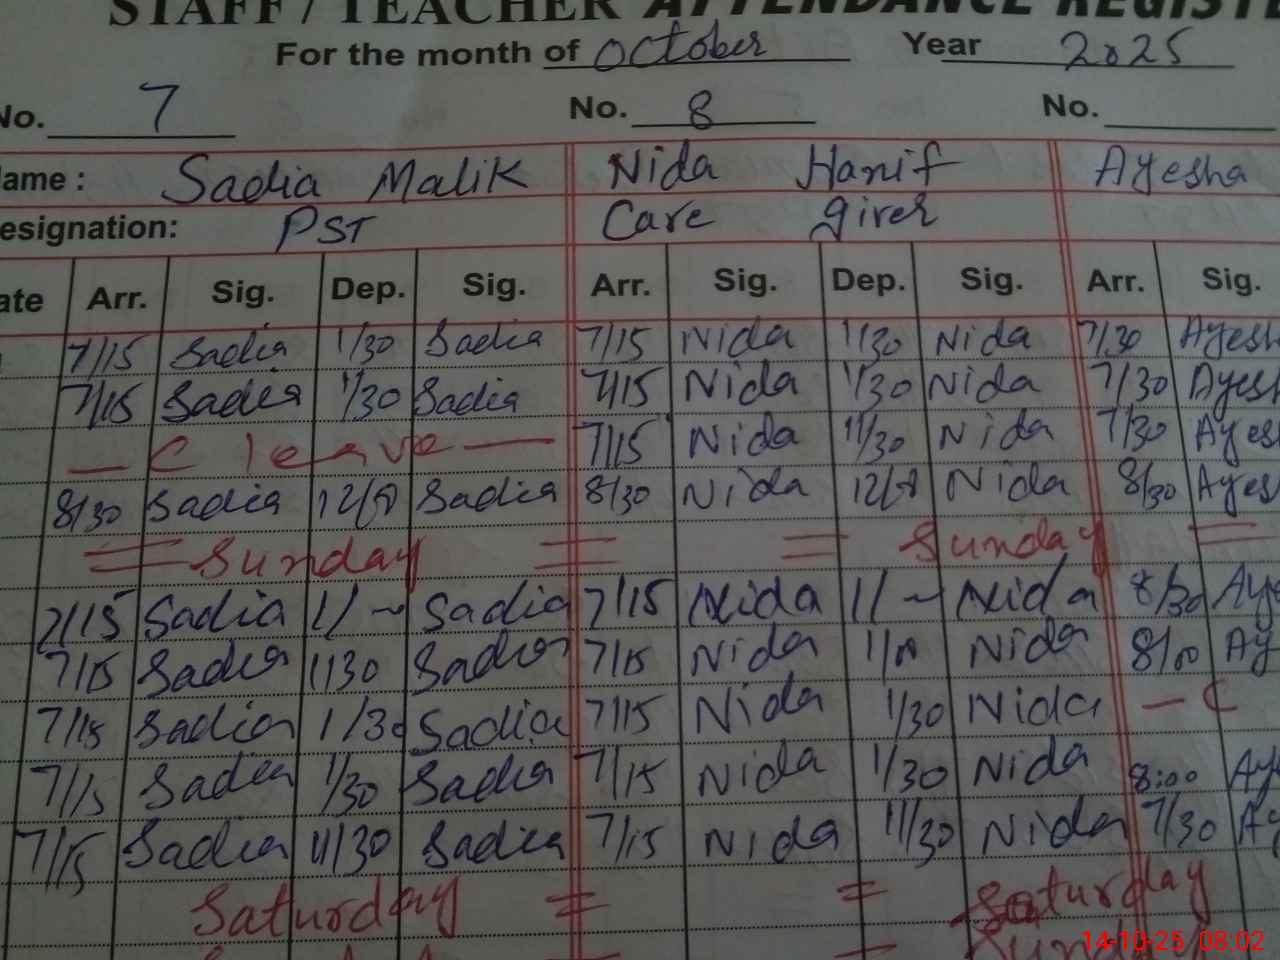 STAFF / TEACHER ATTENDANCE REGISTE
For the month of October Year 2025
No. 7 No. 8 No.
ame : Sadia Malik Nida Hanif Ayesha
esignation: PST Care Giver
ate Arr. Sig. Dep. Sig. Arr. Sig. Dep. Sig. Arr. Sig.
7/15 Sadia 1/30 Sadia 7/15 Nida 1/30 Nida 7/30 Ayesh
7/15 Sadia 1/30 Sadia 7/15 Nida 1/30 Nida 7/30 Ayesh
— C leave — 7/15 Nida 11/30 Nida 7/30 Ayes
8/30 Sadia Sadia 8/30 Nida Nida 8/30 Ayes
= Sunday = = Sunday =
7/15 Sadia Sadia 7/15 Nida Nida 8/30 Aye
7/15 Sadia 1/30 Sadia 7/15 Nida Nida 8/00 Ay
7/15 Sadia 1/30 Sadia 7/15 Nida 1/30 Nida — C
7/15 Sadia 1/30 Sadia 7/15 Nida 1/30 Nida 8:00 Ay
7/15 Sadia 11/30 Sadia 7/15 Nida 11/30 Nida 7/30 Ay
Saturday = = Saturday
Sunday
14-10-25 08:02